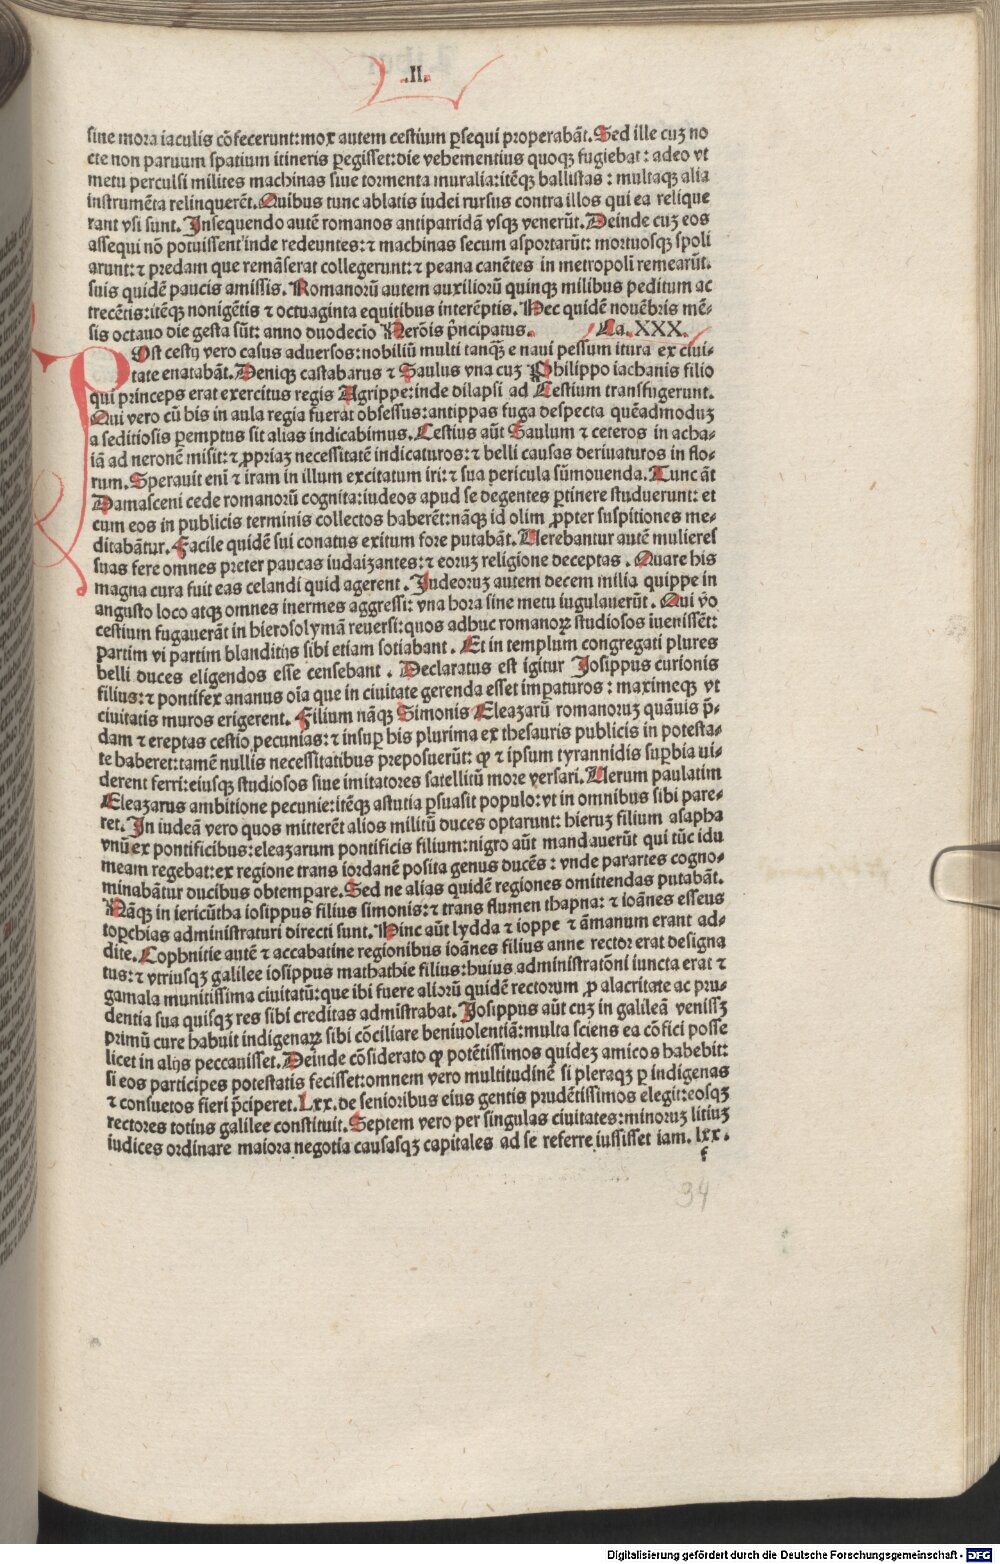 .II.
sine mora iaculis cõfecerunt: mox autem cestium ꝑsequi properabãt. Sed ille cuꝫ no
cte non paruum spatium itineris ꝑegisset: die vehementius quoqꝫ fugiebat: adeo vt
metu perculsi milites machinas siue tormenta muralia: itẽqꝫ ballistas: multaqꝫ alia
instrumẽta relinquerẽt. Quibus tunc ablatis iudei rursus contra illos qui ea relique
rant vsi sunt. Insequendo autẽ romanos antipatridã vsqꝫ venerũt. Deinde cuꝫ eos
assequi nõ potuissent inde redeuntes: ⁊ machinas secum asportarũt: mortuosqꝫ spoli
arunt: ⁊ predam que remãserat collegerunt: ⁊ peana canẽtes in metropoli remearũt.
suis quidẽ paucis amissis. Romanorũ autem auxiliorũ quinqꝫ milibus peditum ac
trecẽtis: itẽqꝫ nonigẽtis ⁊ octuaginta equitibus interẽptis. Hec quidẽ nouẽbris mẽ-
sis octauo die gesta sũt: anno duodecio Nerõis p̃ncipatus. Ca. XXX.
Post cestij vero casus aduersos: nobiliũ multi tanqꝫ e naui pessum itura ex ciui-
tate enatabãt. Deniqꝫ castabarus ⁊ Saulus vna cuꝫ Philippo iachanis filio
qui princeps erat exercitus regis Agrippe: inde dilapsi ad Cestium transfugerunt.
Qui vero cũ his in aula regia fuerat obsessus: antippas fuga despecta quẽadmoduꝫ
a seditiosis ꝑemptus sit alias indicabimus. Cestius aũt Saulum ⁊ ceteros in acha-
iã ad neronẽ misit: ⁊ ꝓpriaꝫ necessitatẽ indicaturos: ⁊ belli causas deriuaturos in flo-
rum. Sperauit eni ̃ ⁊ iram in illum excitatum iri: ⁊ sua pericula sũmouenda. Tunc ãt
Damasceni cede romanorũ cognita: iudeos apud se degentes ꝑtinere studuerunt: et
cum eos in publicis terminis collectos haberẽt: nãqꝫ id olim ꝓpter suspitiones me-
ditabãtur. Facile quidẽ sui conatus exitum fore putabãt. Verebantur autẽ mulieres
suas fere omnes preter paucas iudaizantes: ⁊ eoruꝫ religione deceptas. Quare his
magna cura fuit eas celandi quid agerent. Iudeoruꝫ autem decem milia quippe in
angusto loco atqꝫ omnes inermes aggressi: vna hora sine metu iugulauerũt. Qui ṽo
cestium fugauerãt in hierosolymã reuersi: quos adhuc romanoꝝ studiosos iuenissẽt:
partim vi partim blanditijs sibi etiam sotiabant. Et in templum congregati plures
belli duces eligendos esse censebant. Declaratus est igitur Iosippus curionis
filius: ⁊ pontifex ananus oĩa que in ciuitate gerenda esset imꝑaturos: maximeqꝫ vt
ciuitatis muros erigerent. Filium nãqꝫ Simonis Eleazarũ romanoruꝫ quãuis p̃-
dam ⁊ ereptas cestio pecunias: ⁊ insuꝑ his plurima ex thesauris publicis in potesta-
te haberet: tamẽ nullis necessitatibus preposuerũt: ꝙ ⁊ ipsum tyrannidis suꝑbia ui-
derent ferri: eiusqꝫ studiosos siue imitatores satellitũ more versari. Verum paulatim
Eleazarus ambitione pecunie: itẽqꝫ astutia ꝑsuasit populo: vt in omnibus sibi pare-
ret. In iudeã vero quos mitterẽt alios militũ duces optarunt: hieruꝫ filium asapha
vnũ ex pontificibus: eleazarum pontificis filium: nigro aũt mandauerũt qui tũc idu
meam regebat: ex regione trans iordanẽ posita genus ducẽs: vnde parartes cogno-
minabãtur ducibus obtemꝑare. Sed ne alias quidẽ regiones omittendas putabãt.
Nãqꝫ in iericũtha iosippus filius simonis: ⁊ trans flumen thapna: ⁊ ioãnes esseus
toꝑchias administraturi directi sunt. Hinc aũt lydda ⁊ ioppe ⁊ ãmanum erant ad-
dite. Cophnitie autẽ ⁊ accabatine regionibus ioãnes filius anne rector erat designa
tus: ⁊ vtriusqꝫ galilee iosippus mathathie filius: huius administratõni iuncta erat ⁊
gamala munitissima ciuitatũ: que ibi fuere aliorũ quidẽ rectorum ꝓ alacritate ac pru-
dentia sua quisqꝫ res sibi creditas admistrabat. Iosippus aũt cuꝫ in galileã venissꝫ
primũ cure habuit indigenaꝝ sibi cõciliare beniuolentiã: multa sciens ea cõfici posse
licet in alijs peccanisset. Deinde cõsiderato ꝙ potẽtissimos quideꝫ amicos habebit:
si eos participes potestatis fecisset: omnem vero multitudinẽ si pleraqꝫ ꝑ indigenas
⁊ consuetos fieri p̃ciperet. Lxx. de senioribus eius gentis prudẽtissimos elegit: eosqꝫ
rectores totius galilee constituit. Septem vero per singulas ciuitates: minoruꝫ litiuꝫ
iudices ordinare maiora negotia causasqꝫ capitales ad se referre iussisset iam. lxx.
f
34
Digitalisierung gefördert durch die Deutsche Forschungsgemeinschaft - DFG